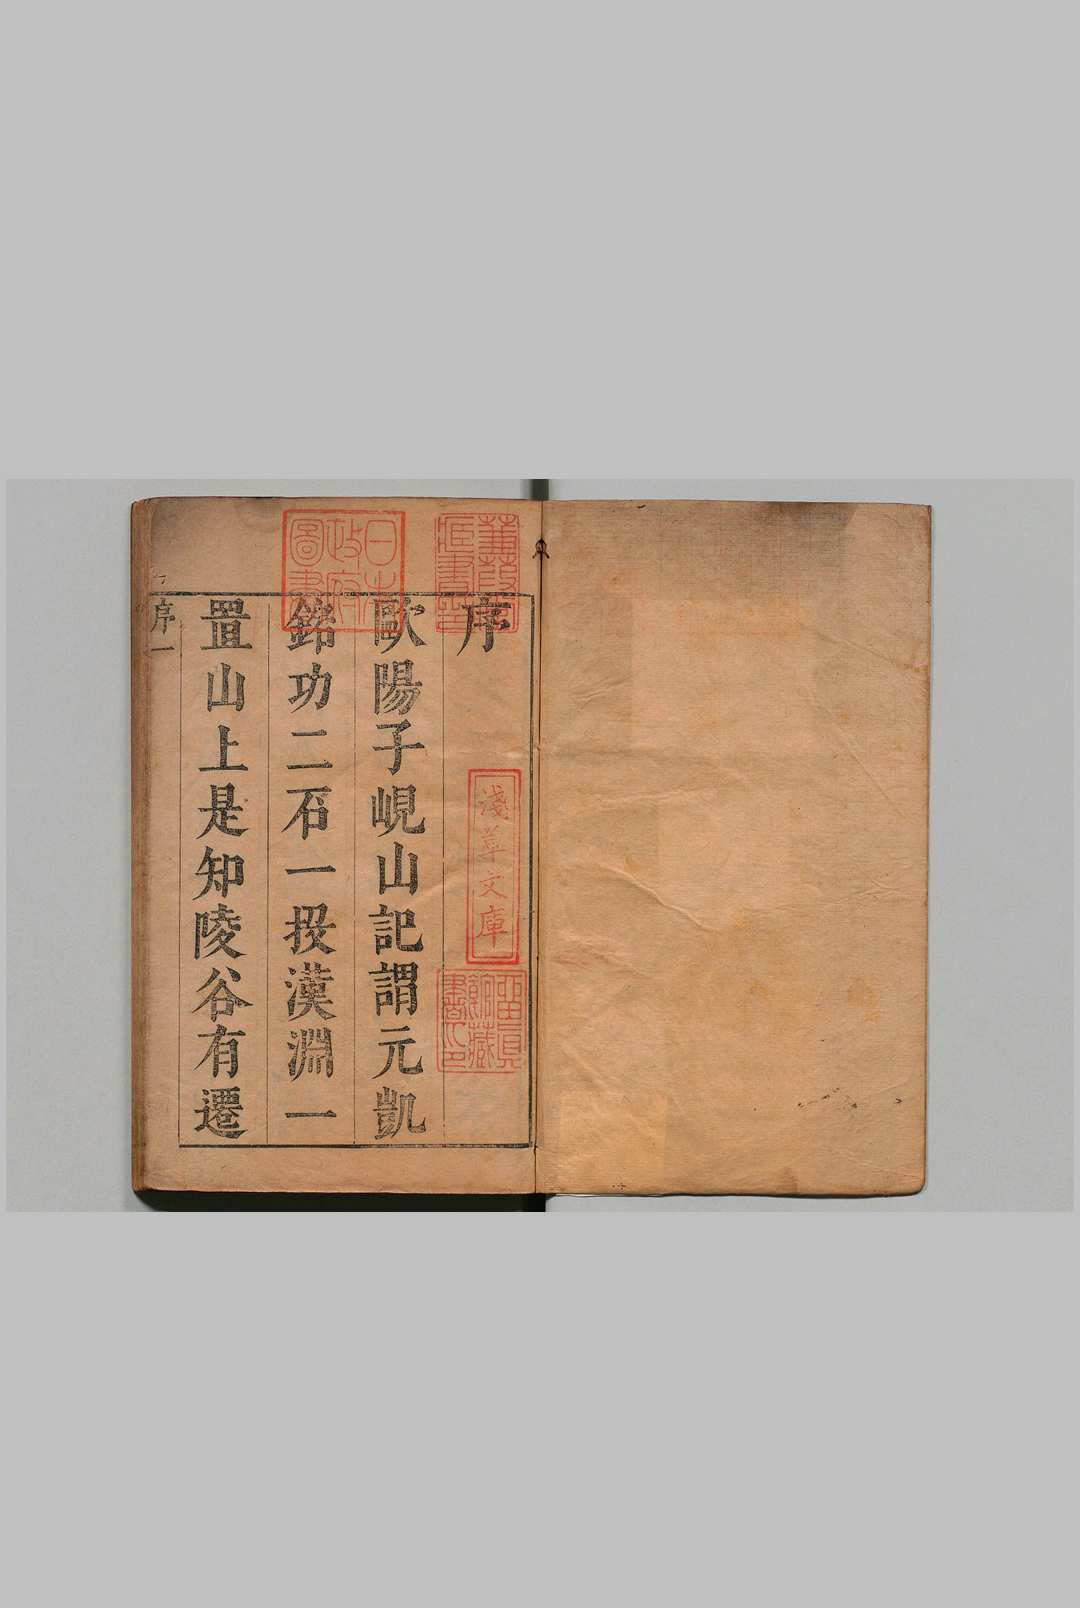 序
歐陽子峴山記謂元凱
銘功二石一投漢淵一
置山上是知陵谷有遷
序 一
日本
政府
圖書
蒹葭堂
藏書印
淺草文庫
昌平